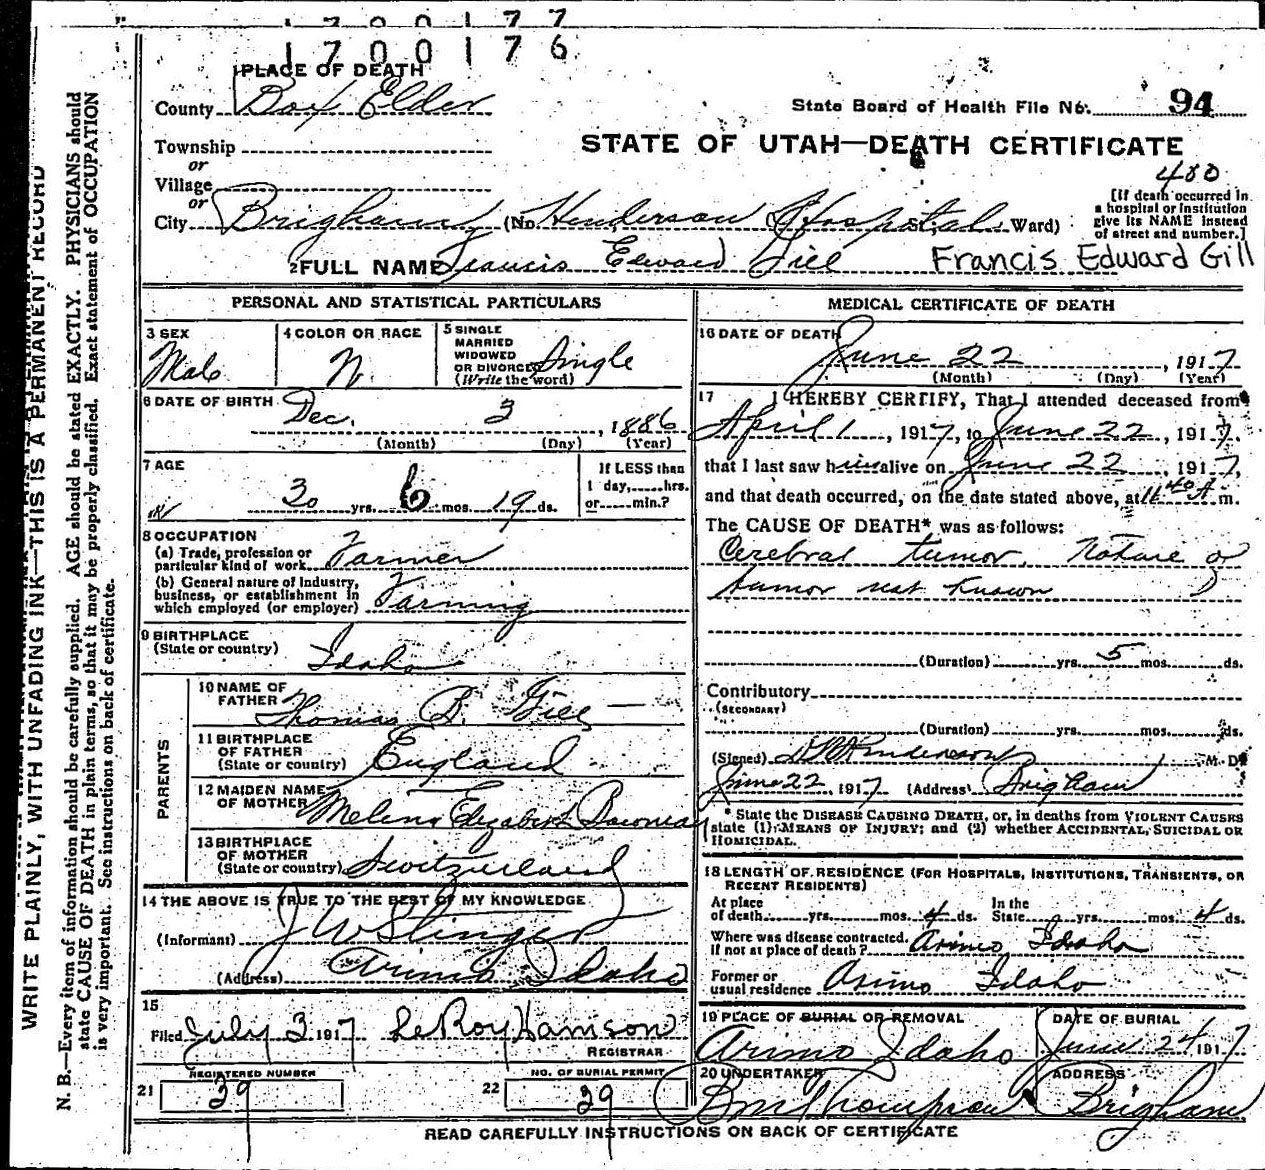 1700177
1700176
PLACE OF DEATH
County Box Elder
State Board of Health File No. 94
Township
or
Village
or
STATE OF UTAH—DEATH CERTIFICATE
480
[If death occurred in
a hospital or institution
give its NAME instead
of street and number.]
City Brigham (No. Henderson Hospital Ward)
2 FULL NAME Francis Edward Gill Francis Edward Gill
PERSONAL AND STATISTICAL PARTICULARS
3 SEX Male
4 COLOR OR RACE W.
5 SINGLE
MARRIED
WIDOWED
OR DIVORCED
(Write the word) Single
6 DATE OF BIRTH
Dec. 3, 1886
(Month) (Day) (Year)
7 AGE
30 yrs. 6 mos. 19 ds.
If LESS than
1 day, hrs.
or min.?
8 OCCUPATION
(a) Trade, profession or
particular kind of work Farmer
(b) General nature of Industry,
business, or establishment in
which employed (or employer) Farming
9 BIRTHPLACE
(State or country) Idaho
PARENTS
10 NAME OF
FATHER Thomas B. Gill
11 BIRTHPLACE
OF FATHER
(State or country) England
12 MAIDEN NAME
OF MOTHER Melina Elizabeth
13 BIRTHPLACE
OF MOTHER
(State or country) Switzerland
14 THE ABOVE IS TRUE TO THE BEST OF MY KNOWLEDGE
(Informant) J W Stinger
(Address) Arimo Idaho
15
Filed July 3 1917 LeRoy Hamson
REGISTRAR
REGISTERED NUMBER
21 39
NO. OF BURIAL PERMIT
22 39
MEDICAL CERTIFICATE OF DEATH
16 DATE OF DEATH
June 22, 1917
(Month) (Day) (Year)
17 I HEREBY CERTIFY, That I attended deceased from
April 1, 1917, to June 22, 1917,
that I last saw him alive on June 22, 1917,
and that death occurred, on the date stated above, at 11 40 A. m.
The CAUSE OF DEATH* was as follows:
Cerebral tumor. Nature of
tumor not known
(Duration) yrs. 5 mos. ds.
Contributory
(SECONDARY)
(Duration) yrs. mos. ds.
(Signed) M. D.
June 22, 1917 (Address) Brigham
* State the DISEASE CAUSING DEATH, or, in deaths from VIOLENT CAUSES
state (1) MEANS OF INJURY; and (2) whether ACCIDENTAL, SUICIDAL OR
HOMICIDAL.
18 LENGTH OF RESIDENCE (FOR HOSPITALS, INSTITUTIONS, TRANSIENTS, OR
RECENT RESIDENTS)
At place
of death yrs. mos. 4 ds.
In the
State yrs. mos. 4 ds.
Where was disease contracted,
if not at place of death? Arimo Idaho
Former or
usual residence Arimo Idaho
19 PLACE OF BURIAL OR REMOVAL
Arimo Idaho
DATE OF BURIAL
June 24, 1917
20 UNDERTAKER
Thompson
ADDRESS
Brigham
READ CAREFULLY INSTRUCTIONS ON BACK OF CERTIFICATE
WRITE PLAINLY, WITH UNFADING INK—THIS IS A PERMANENT RECORD
N. B.—Every item of information should be carefully supplied. AGE should be stated EXACTLY. PHYSICIANS should
state CAUSE OF DEATH in plain terms, so that it may be properly classified. Exact statement of OCCUPATION
is very important. See instructions on back of certificate.